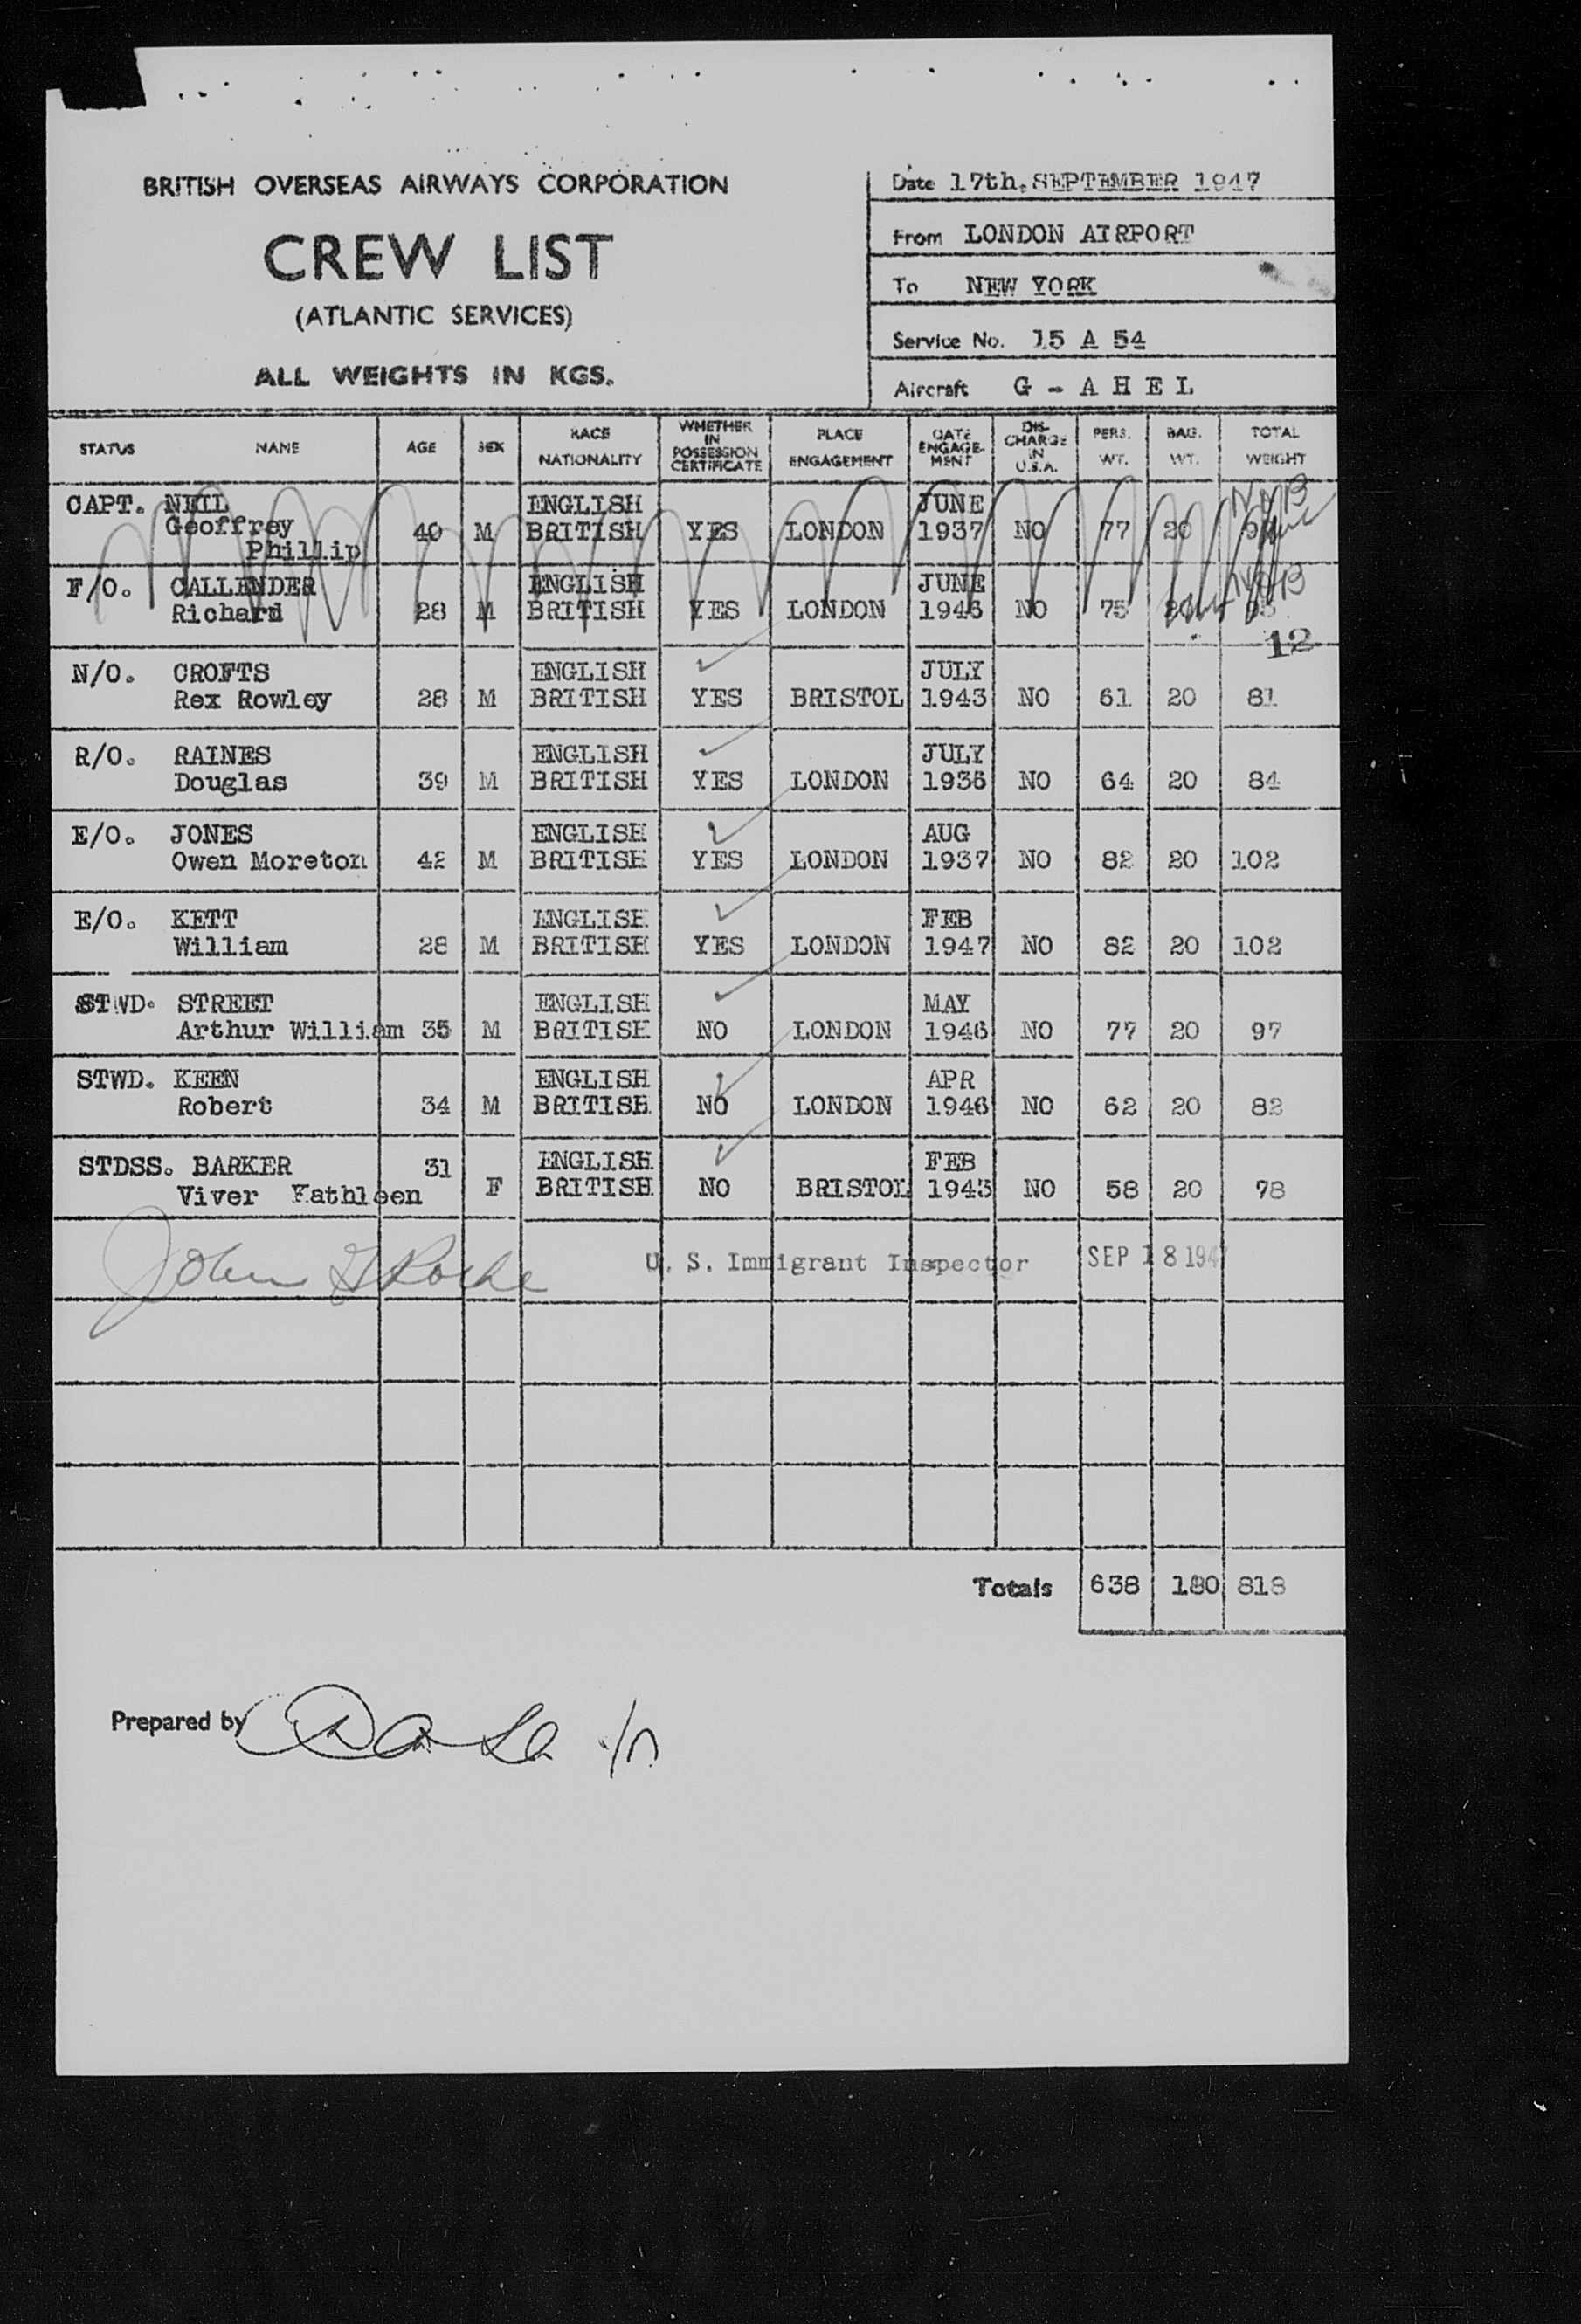 BRITISH OVERSEAS AIRWAYS CORPORATION
CREW LIST
(ATLANTIC SERVICES)
ALL WEIGHTS IN KGS.
Date 17th. SEPTEMBER 1947
From LONDON AIRPORT
To NEW YORK
Service No. 15 A 54
Aircraft G - A H E L
STATUS NAME AGE SEX RACE NATIONALITY WHETHER IN POSSESSION CERTIFICATE PLACE ENGAGEMENT DATE ENGAGE-MENT DIS-CHARGE IN U.S.A. PERS. WT. BAG. WT. TOTAL WEIGHT
CAPT. NEIL ENGLISH JUNE
Geoffrey 40 M BRITISH YES LONDON 1937 NO 77 20
Phillip
F/O. CALLENDER ENGLISH JUNE
Richard 28 M BRITISH YES LONDON 1946 NO 75 20
12
N/O. CROFTS ENGLISH JULY
Rex Rowley 28 M BRITISH YES BRISTOL 1943 NO 61 20 81
R/O. RAINES ENGLISH JULY
Douglas 39 M BRITISH YES LONDON 1936 NO 64 20 84
E/O. JONES ENGLISH AUG
Owen Moreton 42 M BRITISH YES LONDON 1937 NO 82 20 102
E/O. KETT ENGLISH FEB
William 28 M BRITISH YES LONDON 1947 NO 82 20 102
STWD. STREET ENGLISH MAY
Arthur William 35 M BRITISH NO LONDON 1946 NO 77 20 97
STWD. KEEN ENGLISH APR
Robert 34 M BRITISH NO LONDON 1946 NO 62 20 82
STDSS. BARKER 31 ENGLISH FEB
Viver Kathleen F BRITISH NO BRISTOL 1943 NO 58 20 78
John G Roche U. S. Immigrant Inspector SEP 18 1947
Totals 638 180 818
Prepared by